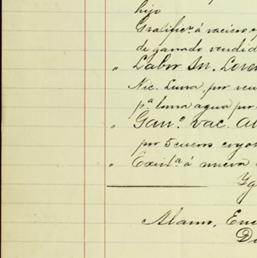 hijo
Gratific.ⁿ á varios
de ganado vendid
" Labor Sn. Loren
Nic. Luna, por
pª toma agua por
" Ganº. vac. al
por 5 cueros
" Existª á nueva
Yg
Alamo, Ene
D